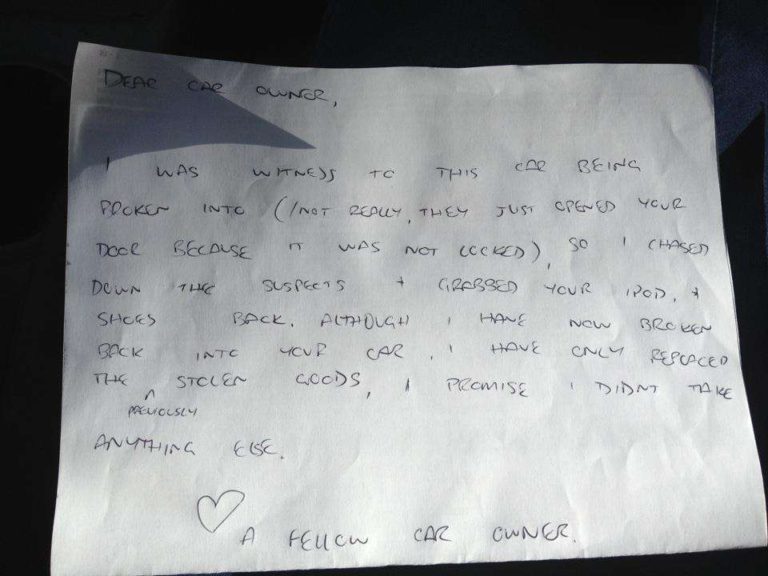 DEAR CAR OWNER,
I WAS WITNESS TO THIS CAR BEING
BROKEN INTO (/NOT REALLY, THEY JUST OPENED YOUR
DOOR BECAUSE IT WAS NOT LOCKED), SO I CHASED
DOWN THE SUSPECTS + GRABBED YOUR IPOD, +
SHOES BACK. ALTHOUGH I HAVE NOW BROKEN
BACK INTO YOUR CAR, I HAVE ONLY REPLACED
THE ^ STOLEN GOODS, I PROMISE I DIDNT TAKE
PREVIOUSLY
ANYTHING ELSE.
♡ A FELLOW CAR OWNER.